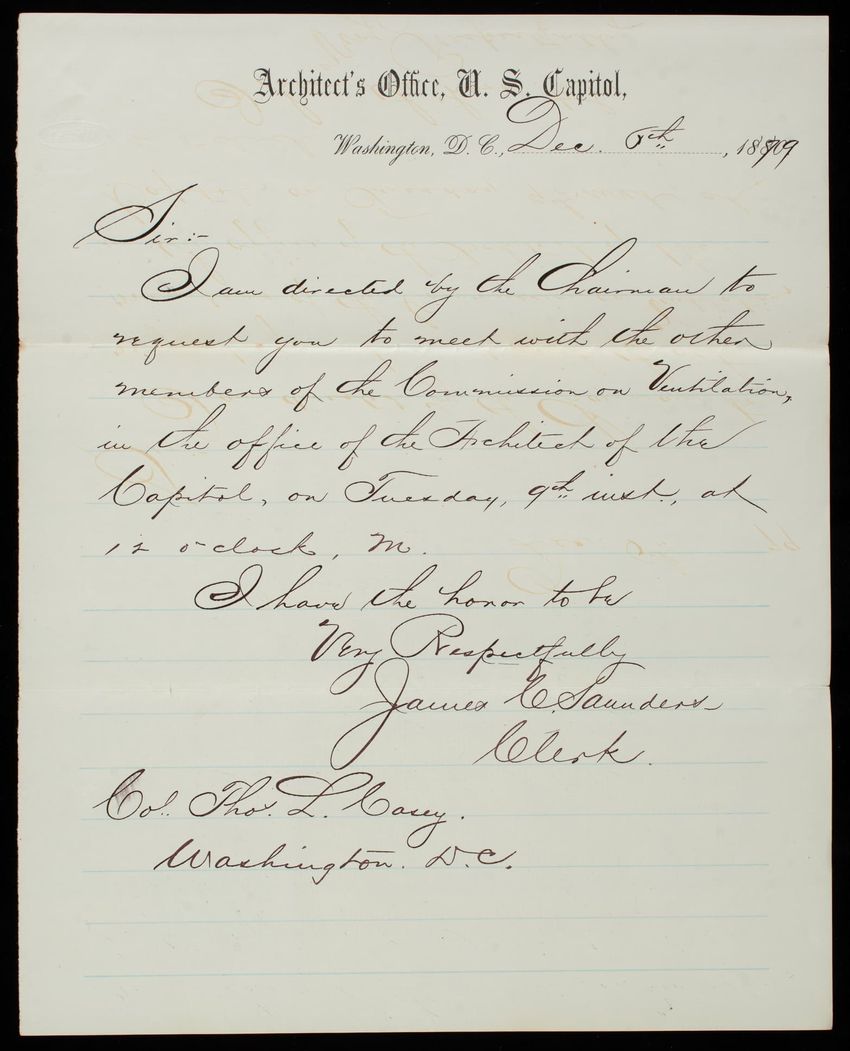 Architect's Office, U. S. Capitol,
Washington, D. C., Dec. 5th, 1879
Sir:-
I am directed by the Chairman to
request you to meet with the other
members of the Commission on Ventilation,
in the office of the Architect of the
Capitol, on Tuesday, 9th inst., at
12 o'clock, M.
I have the honor to be
Very Respectfully
James C. Saunders
Clerk.
Col. Thos. L. Casey.
Washington. D.C.